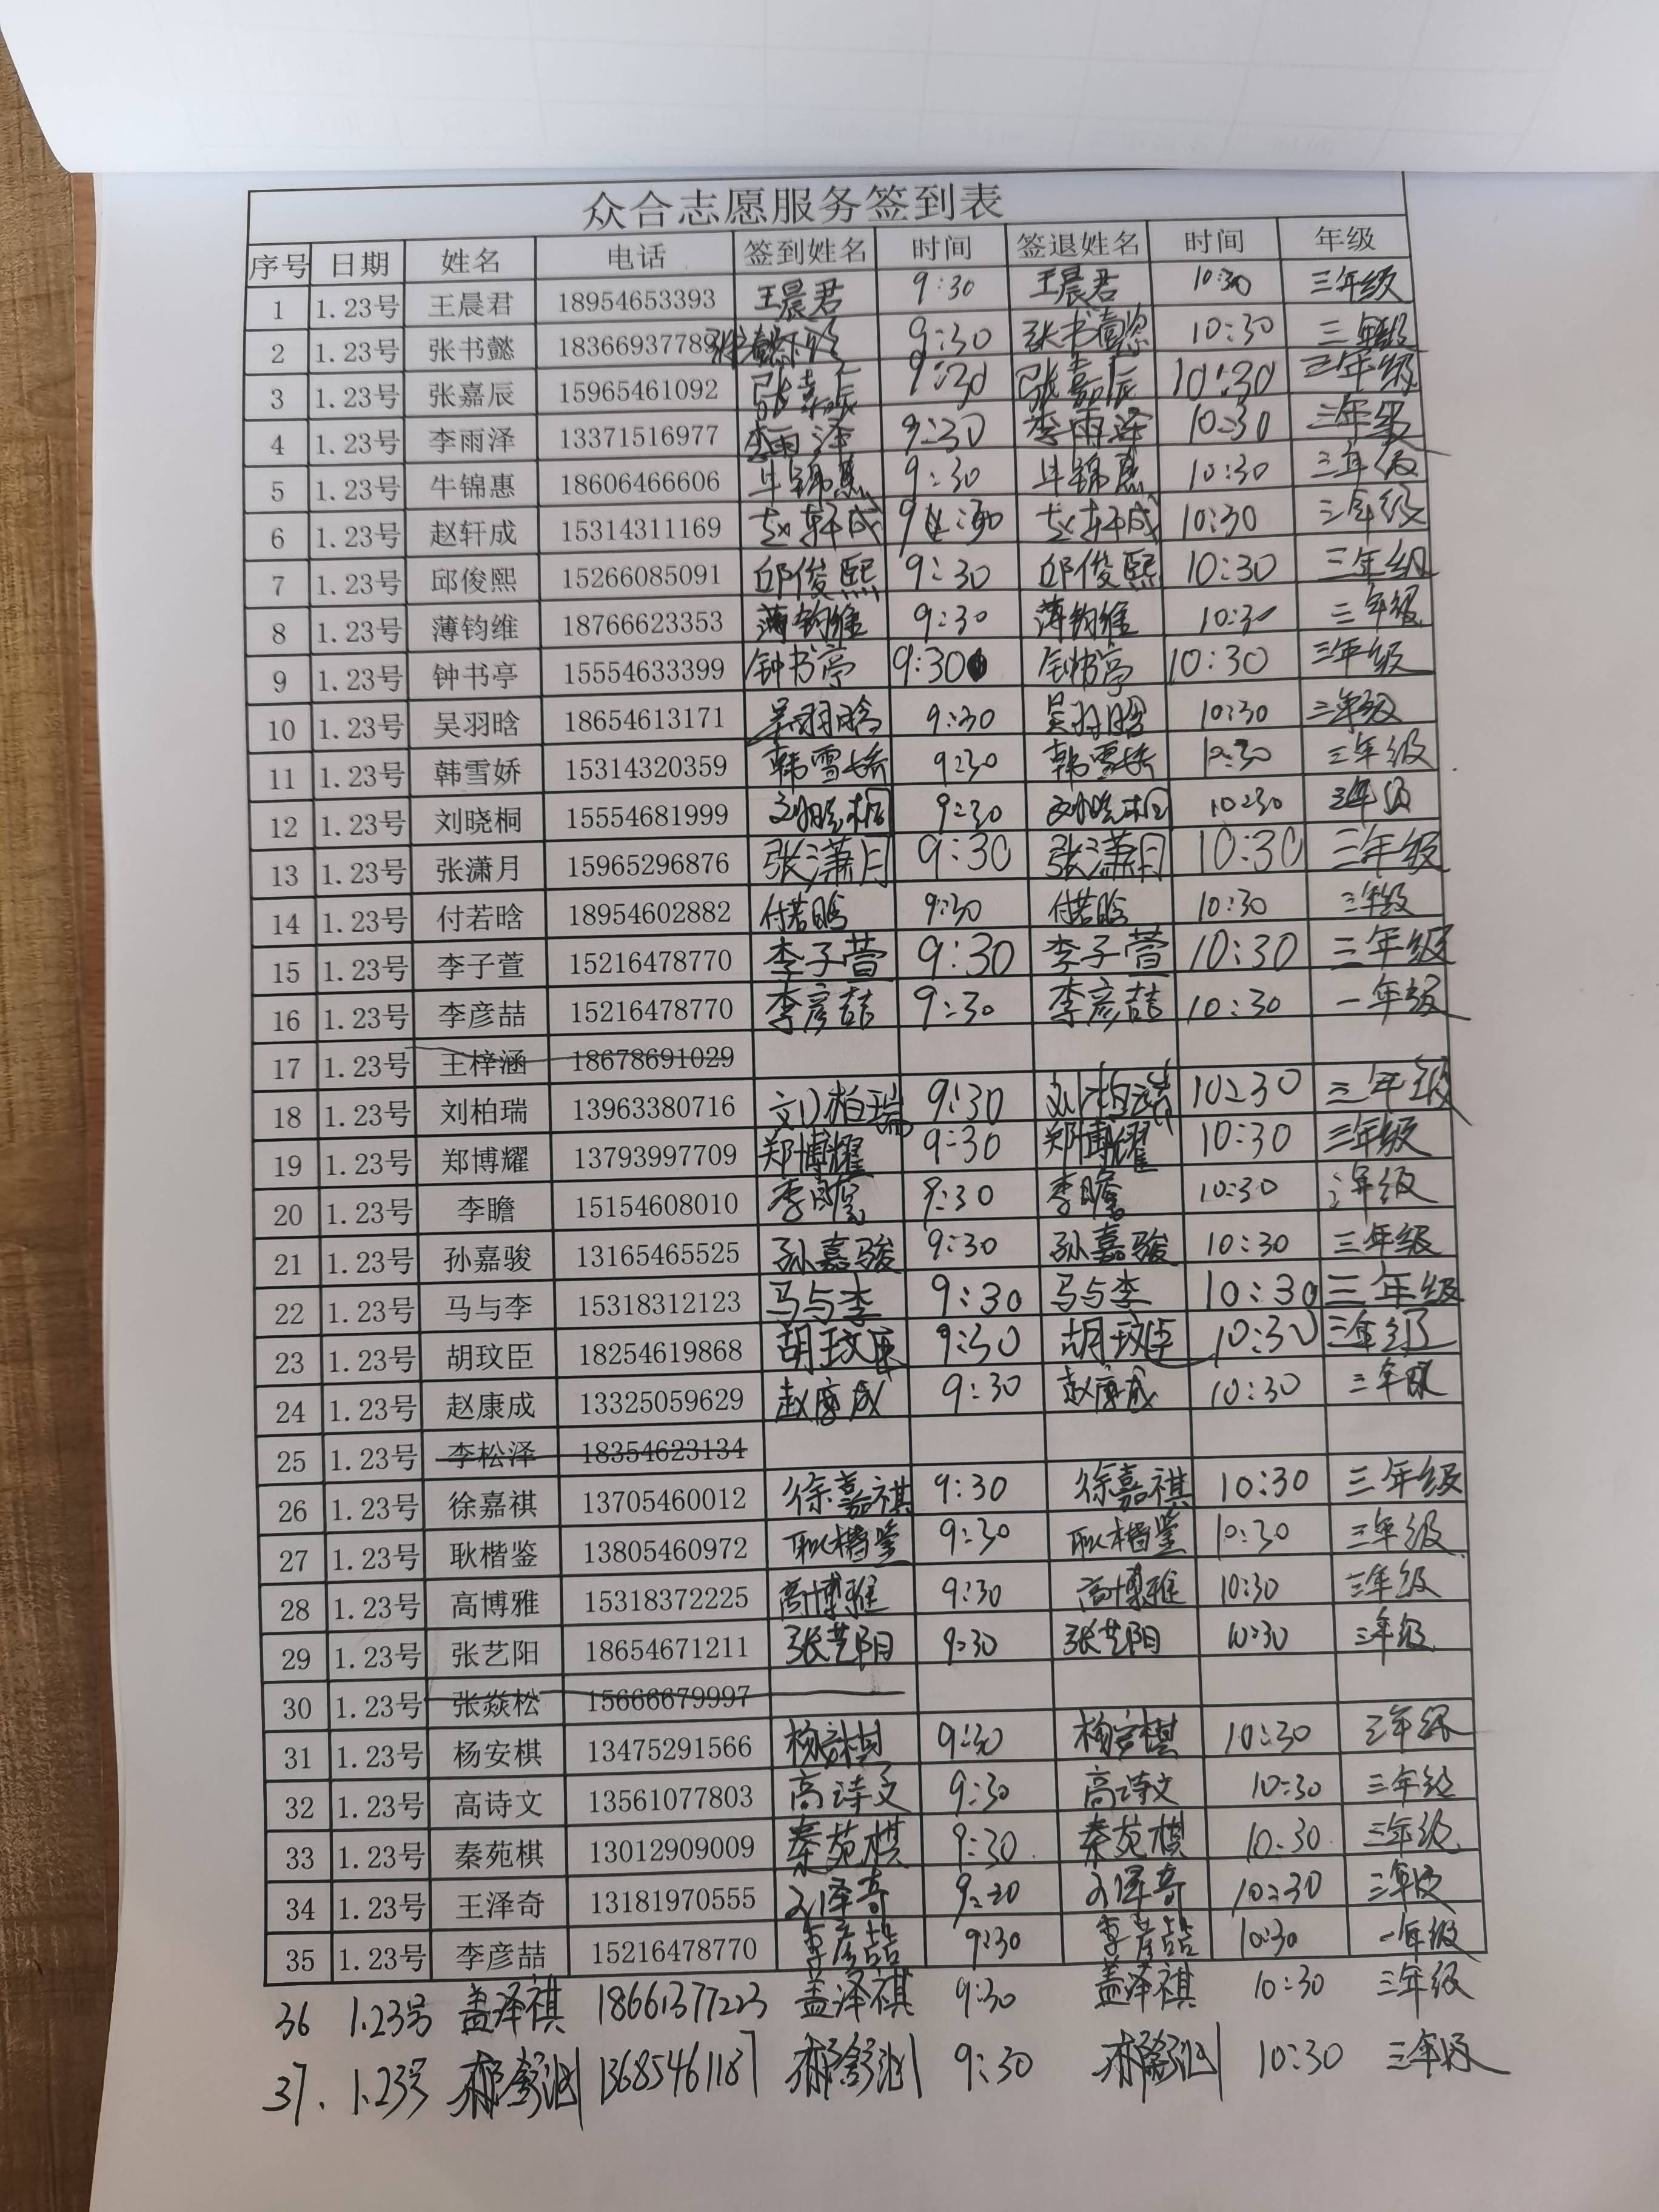 众合志愿服务签到表
序号 日期 姓名 电话 签到姓名 时间 签退姓名 时间 年级
1 1.23号 王晨君 18954653393 王晨君 9:30 王晨君 10:30 三年级
2 1.23号 张书懿 1836693778 张书懿 9:30 张书懿 10:30 三年级
3 1.23号 张嘉辰 15965461092 张嘉辰 9:30 张嘉辰 10:30 三年级
4 1.23号 李雨泽 13371516977 李雨泽 9:30 李雨泽 10:30 三年级
5 1.23号 牛锦惠 18606466606 牛锦惠 9:30 牛锦惠 10:30 三年级
6 1.23号 赵轩成 15314311169 赵轩成 9:30 赵轩成 10:30 三年级
7 1.23号 邱俊熙 15266085091 邱俊熙 9:30 邱俊熙 10:30 三年级
8 1.23号 薄钧维 18766623353 薄钧维 9:30 薄钧维 10:30 三年级
9 1.23号 钟书亭 15554633399 钟书亭 9:30 钟书亭 10:30 三年级
10 1.23号 吴羽晗 18654613171 吴羽晗 9:30 吴羽晗 10:30 三年级
11 1.23号 韩雪娇 15314320359 韩雪娇 9:30 韩雪娇 10:30 三年级
12 1.23号 刘晓桐 15554681999 刘晓桐 9:30 刘晓桐 10:30 三年级
13 1.23号 张潇月 15965296876 张潇月 9:30 张潇月 10:30 三年级
14 1.23号 付若晗 18954602882 付若晗 9:30 付若晗 10:30 三年级
15 1.23号 李子萱 15216478770 李子萱 9:30 李子萱 10:30 三年级
16 1.23号 李彦喆 15216478770 李彦喆 9:30 李彦喆 10:30 一年级
17 1.23号 王梓涵 18678691029
18 1.23号 刘柏瑞 13963380716 刘柏瑞 9:30 刘柏瑞 10:30 三年级
19 1.23号 郑博耀 13793997709 郑博耀 9:30 郑博耀 10:30 三年级
20 1.23号 李瞻 15154608010 李瞻 9:30 李瞻 10:30 三年级
21 1.23号 孙嘉骏 13165465525 孙嘉骏 9:30 孙嘉骏 10:30 三年级
22 1.23号 马与李 15318312123 马与李 9:30 马与李 10:30 三年级
23 1.23号 胡玟臣 18254619868 胡玟臣 9:30 胡玟臣 10:30 三年级
24 1.23号 赵康成 13325059629 赵康成 9:30 赵康成 10:30 三年级
25 1.23号 李松泽 18354623134
26 1.23号 徐嘉祺 13705460012 徐嘉祺 9:30 徐嘉祺 10:30 三年级
27 1.23号 耿楷鉴 13805460972 耿楷鉴 9:30 耿楷鉴 10:30 三年级
28 1.23号 高博雅 15318372225 高博雅 9:30 高博雅 10:30 三年级
29 1.23号 张艺阳 18654671211 张艺阳 9:30 张艺阳 10:30 三年级
30 1.23号 张焱松 15666679997
31 1.23号 杨安棋 13475291566 杨安棋 9:30 杨安棋 10:30 三年级
32 1.23号 高诗文 13561077803 高诗文 9:30 高诗文 10:30 三年级
33 1.23号 秦苑棋 13012909009 秦苑棋 9:30 秦苑棋 10:30 三年级
34 1.23号 王泽奇 13181970555 王泽奇 9:30 王泽奇 10:30 三年级
35 1.23号 李彦喆 15216478770 李彦喆 9:30 李彦喆 10:30 一年级
36 1.23号 盖泽祺 18661377223 盖泽祺 9:30 盖泽祺 10:30 三年级
37. 1.23号 13685461187 9:30 10:30 三年级